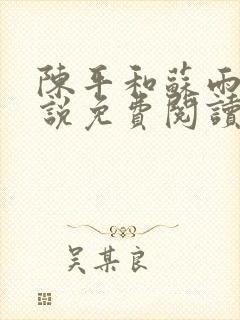 陳平和蘇雨
說免費閱讀
吴某良